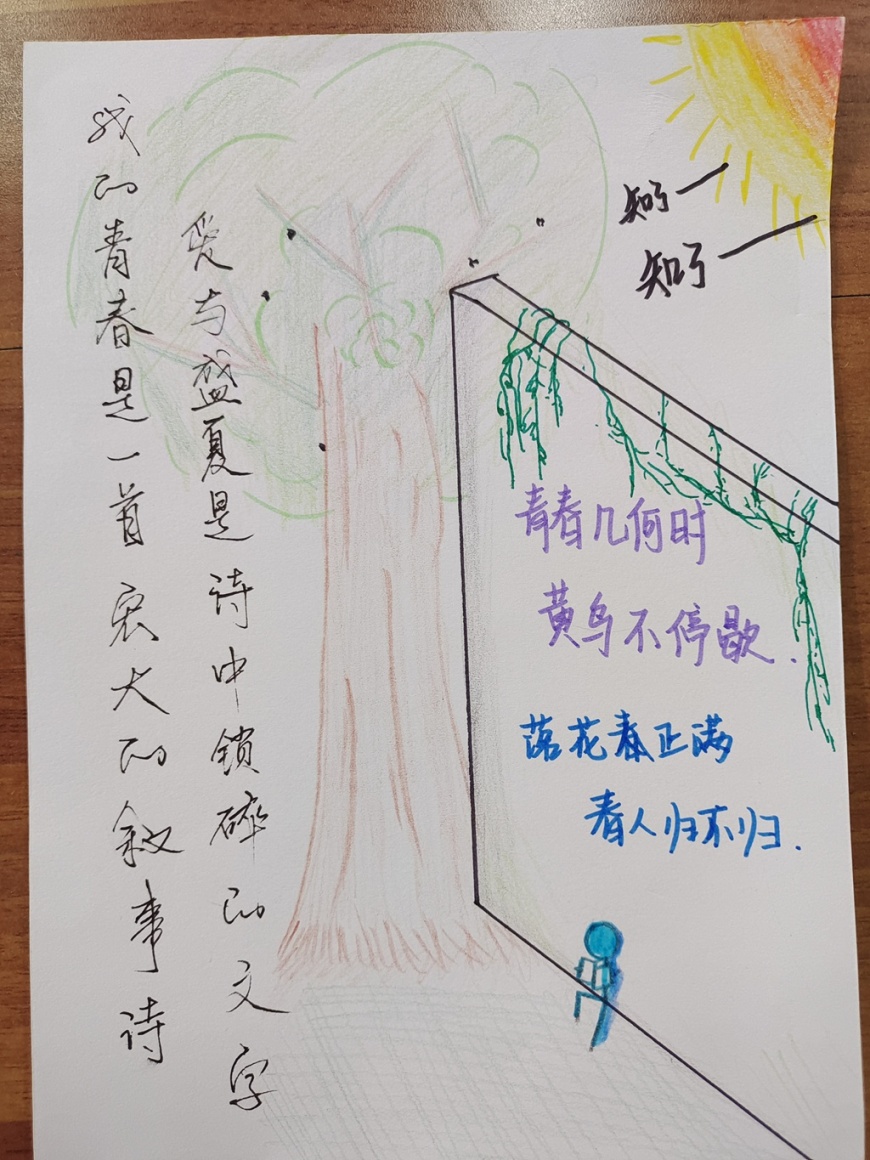 我的青春是一首宏大的叙事诗
爱与盛夏是诗中锁碎的文字
知了一
知了一
青春几何时
黄鸟不停歇.
落花春正满
春人归不归.